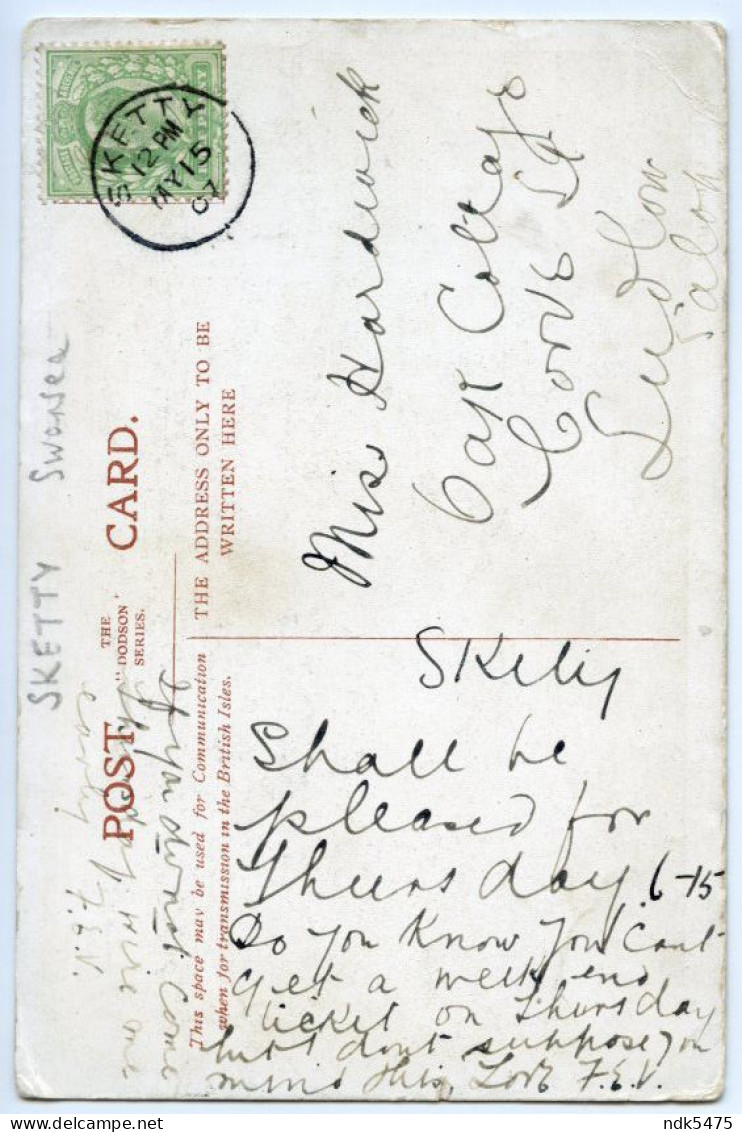 SKETTY
12 PM
MY 15
07
SKETTY Swansea
POST CARD.
THE
"DODSON"
SERIES.
This space may be used for Communication
when for transmission in the British Isles.
THE ADDRESS ONLY TO BE
WRITTEN HERE
Miss Hardwick
Cottage
Corve St
Ludlow
Salop
Skety
Shall be
pleased for
Thursday 6-15
Do You Know You Cant
get a week end
ticket on Thursday
but I dont suppose you
mind this, Love F.E.V.
If you cannot come
me
early
F.E.V.
ndk5475